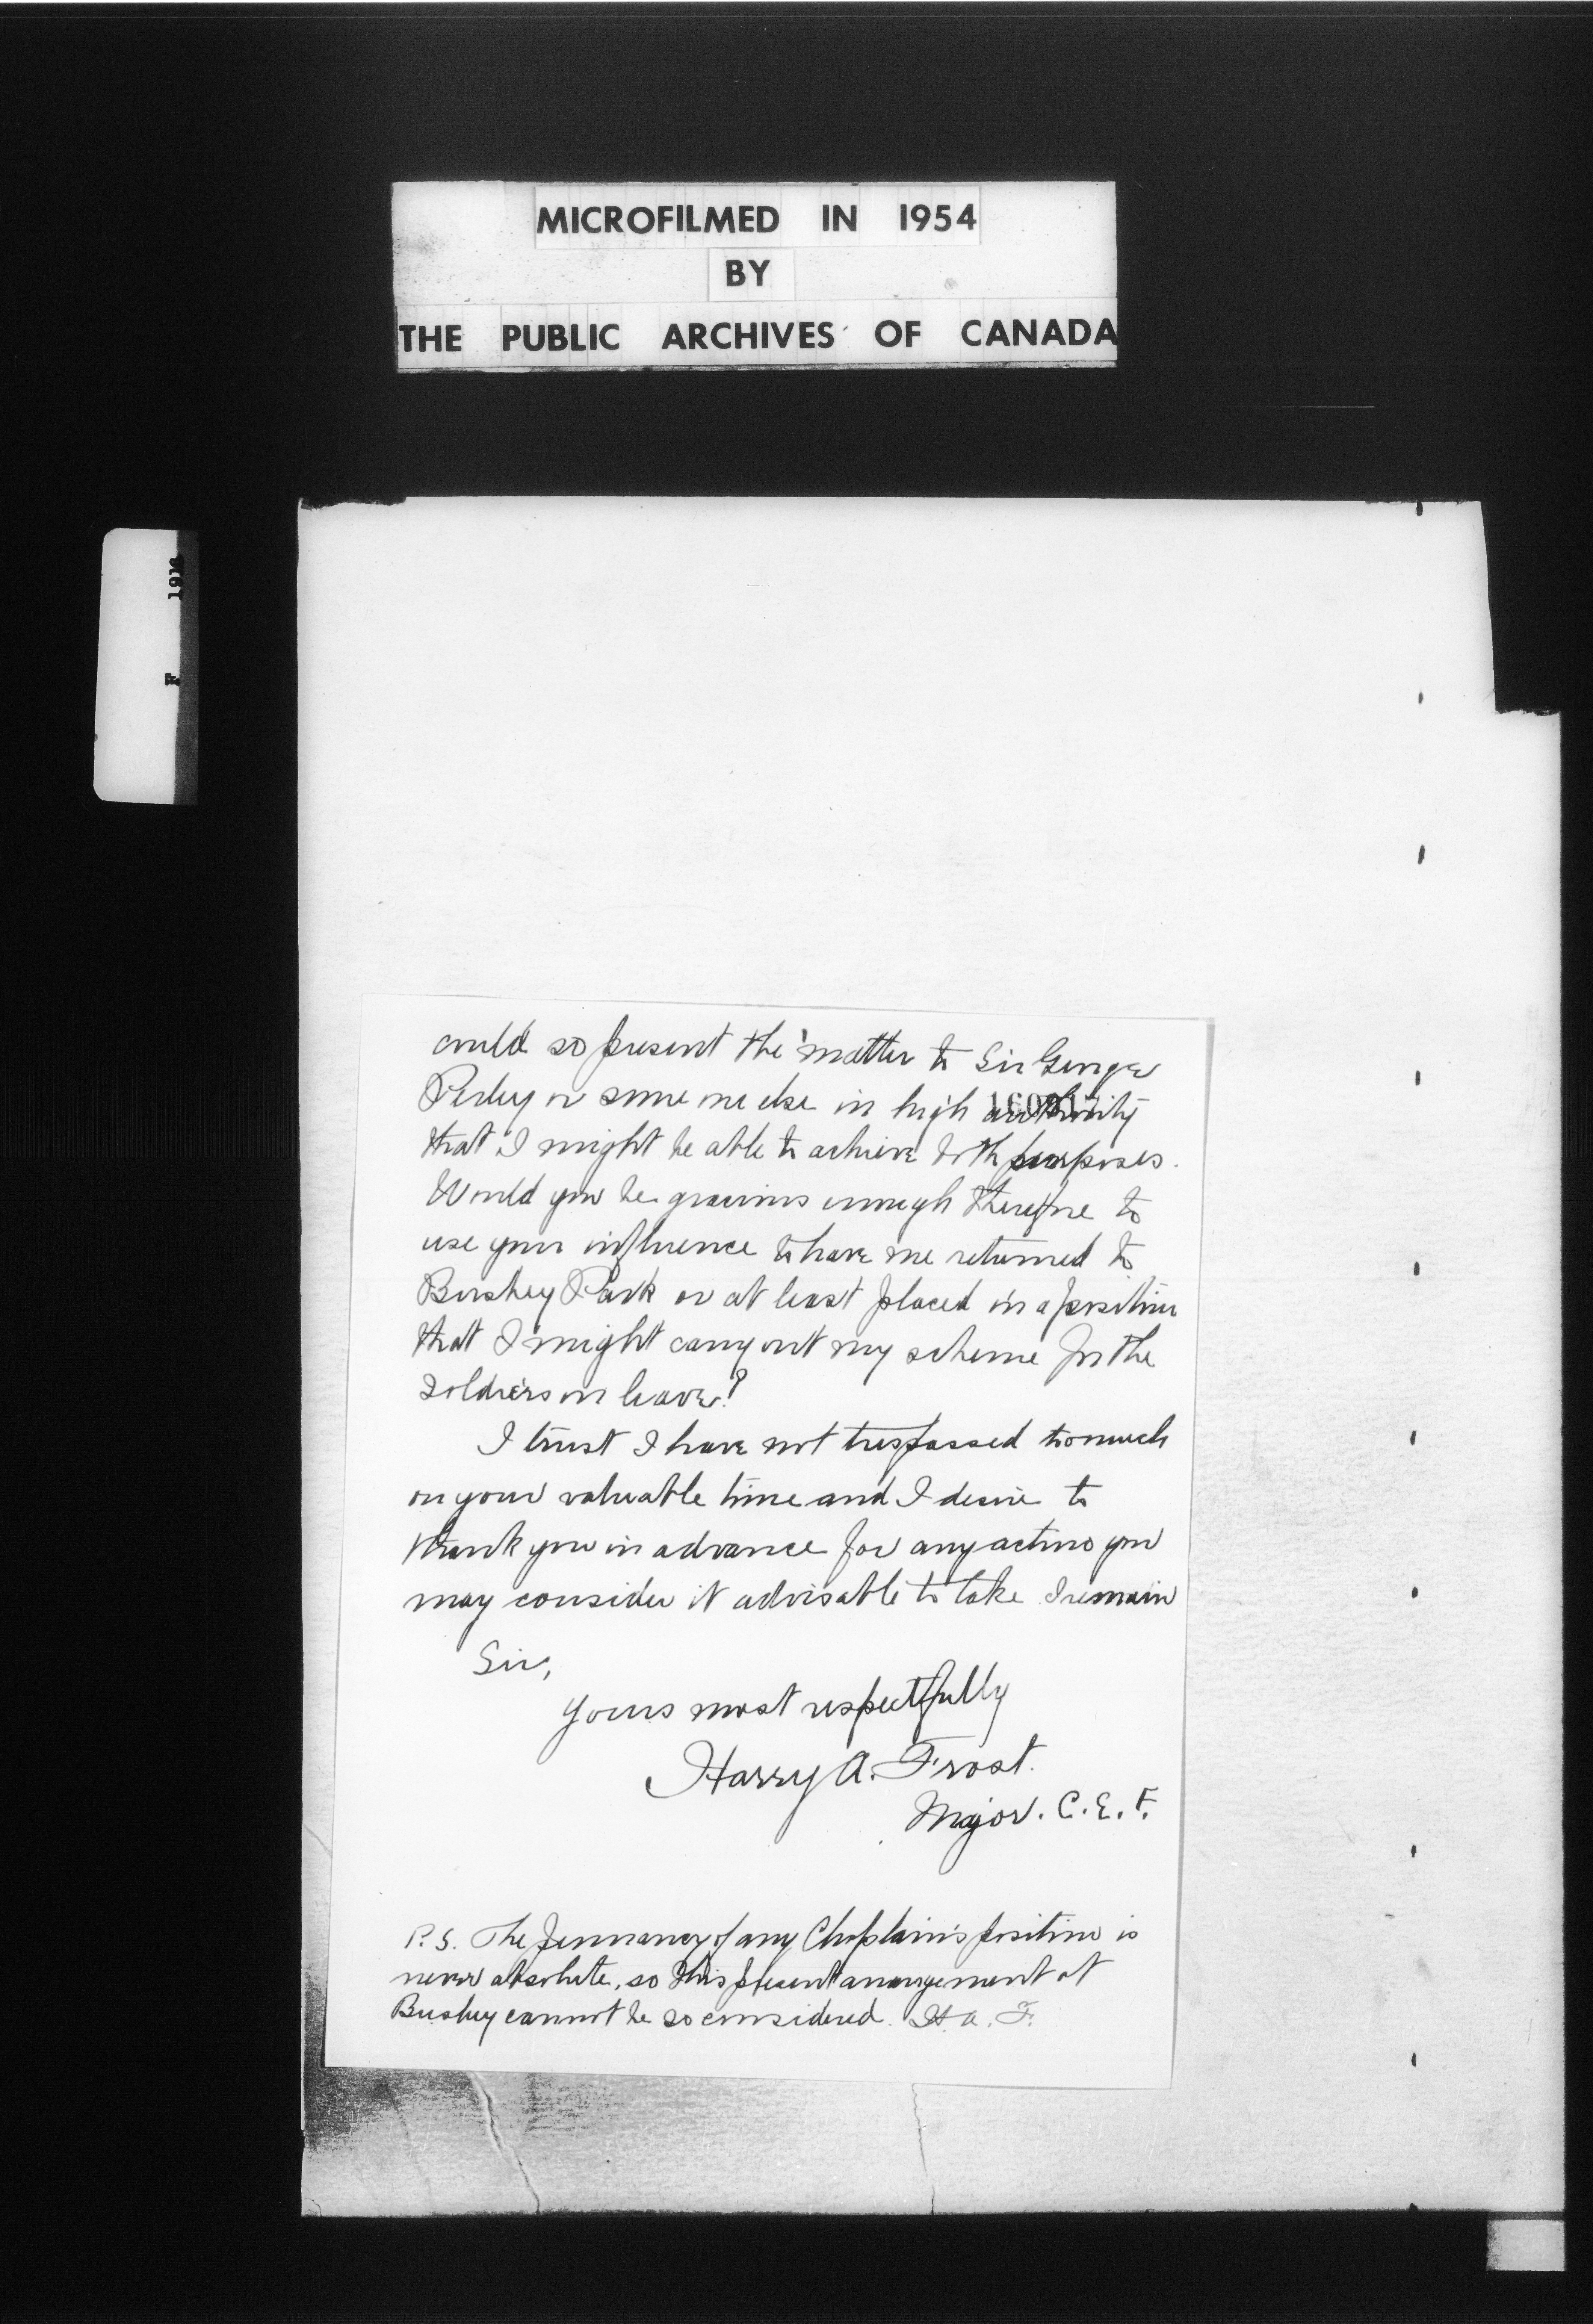 MICROFILMED IN 1954
BY
THE PUBLIC ARCHIVES OF CANADA
1916
F
could so present the matter to Sir George
Perley or some one else in high authority
that I might be able to achieve both purposes.
Would you be gracious enough therefore to
use your influence to have me returned to
Bushey Park or at least placed in a position
that I might carry out my scheme for the
soldiers on leave?
I trust I have not trespassed too much
on your valuable time and I desire to
thank you in advance for any action you
may consider it advisable to take I remain
Sir,
Yours most respectfully
Harry A. Frost.
Major. C.E.F.
P.S. The permanancy of any Chaplain's position is
never absolute, so this present arrangement at
Bushey cannot be so considered. H.A.F.